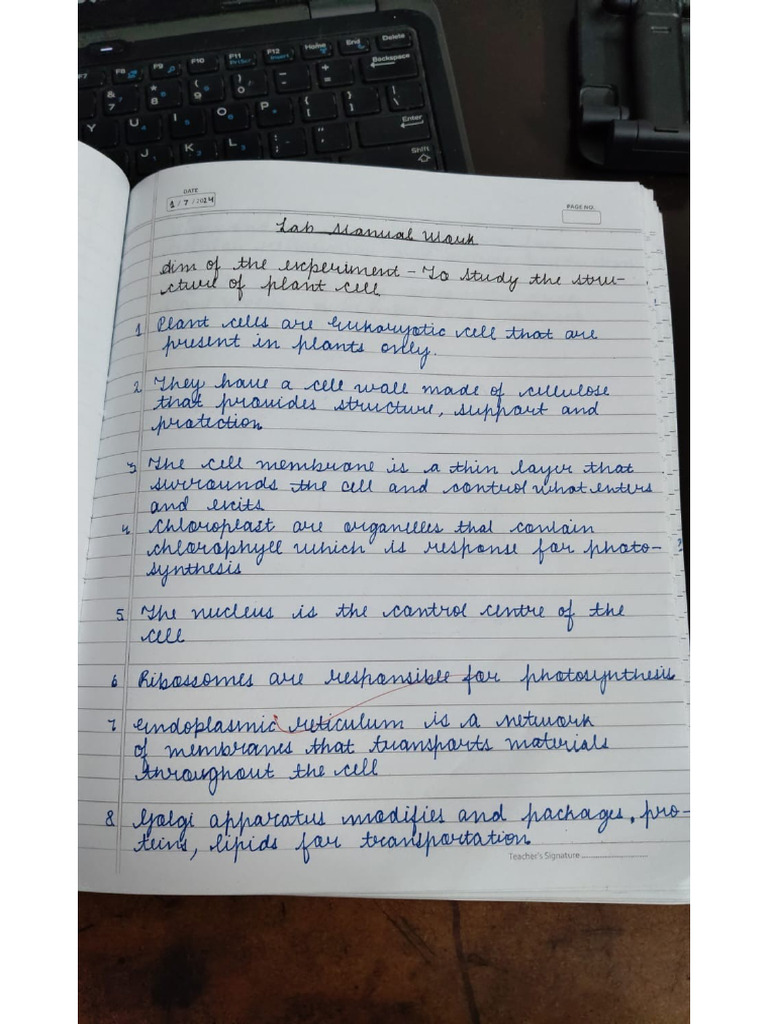 F7 F8 F9 F10 F11 F12 Home End Delete
PrtScr Insert
& 7 * 8 ( 9 ) 0 _ - + = Backspace
Y U I O P { [ } ] | \
J K L : ; " ' Enter
Shift
DATE
1/7/2024
PAGE NO.
Lab Manual Work
Aim of the experiment - To study the stru-
cture of plant cell
1 Plant cells are eukaryotic cell that are
present in plants only.
2 They have a cell wall made of cellulose
that provides structure, support and
protection
3 The cell membrane is a thin layer that
surrounds the cell and control what enters
and exits
4 Chloroplast are organelles that contain
chlorophyll which is response for photo-
synthesis
5 The nucleus is the control centre of the
cell
6 Ribossomes are responsible for photosynthesis
7 Endoplasmic reticulum is a network
of membranes that transports materials
throughout the cell
8 Golgi apparatus modifies and packages, pro-
teins, lipids for transportation
Teacher's Signature